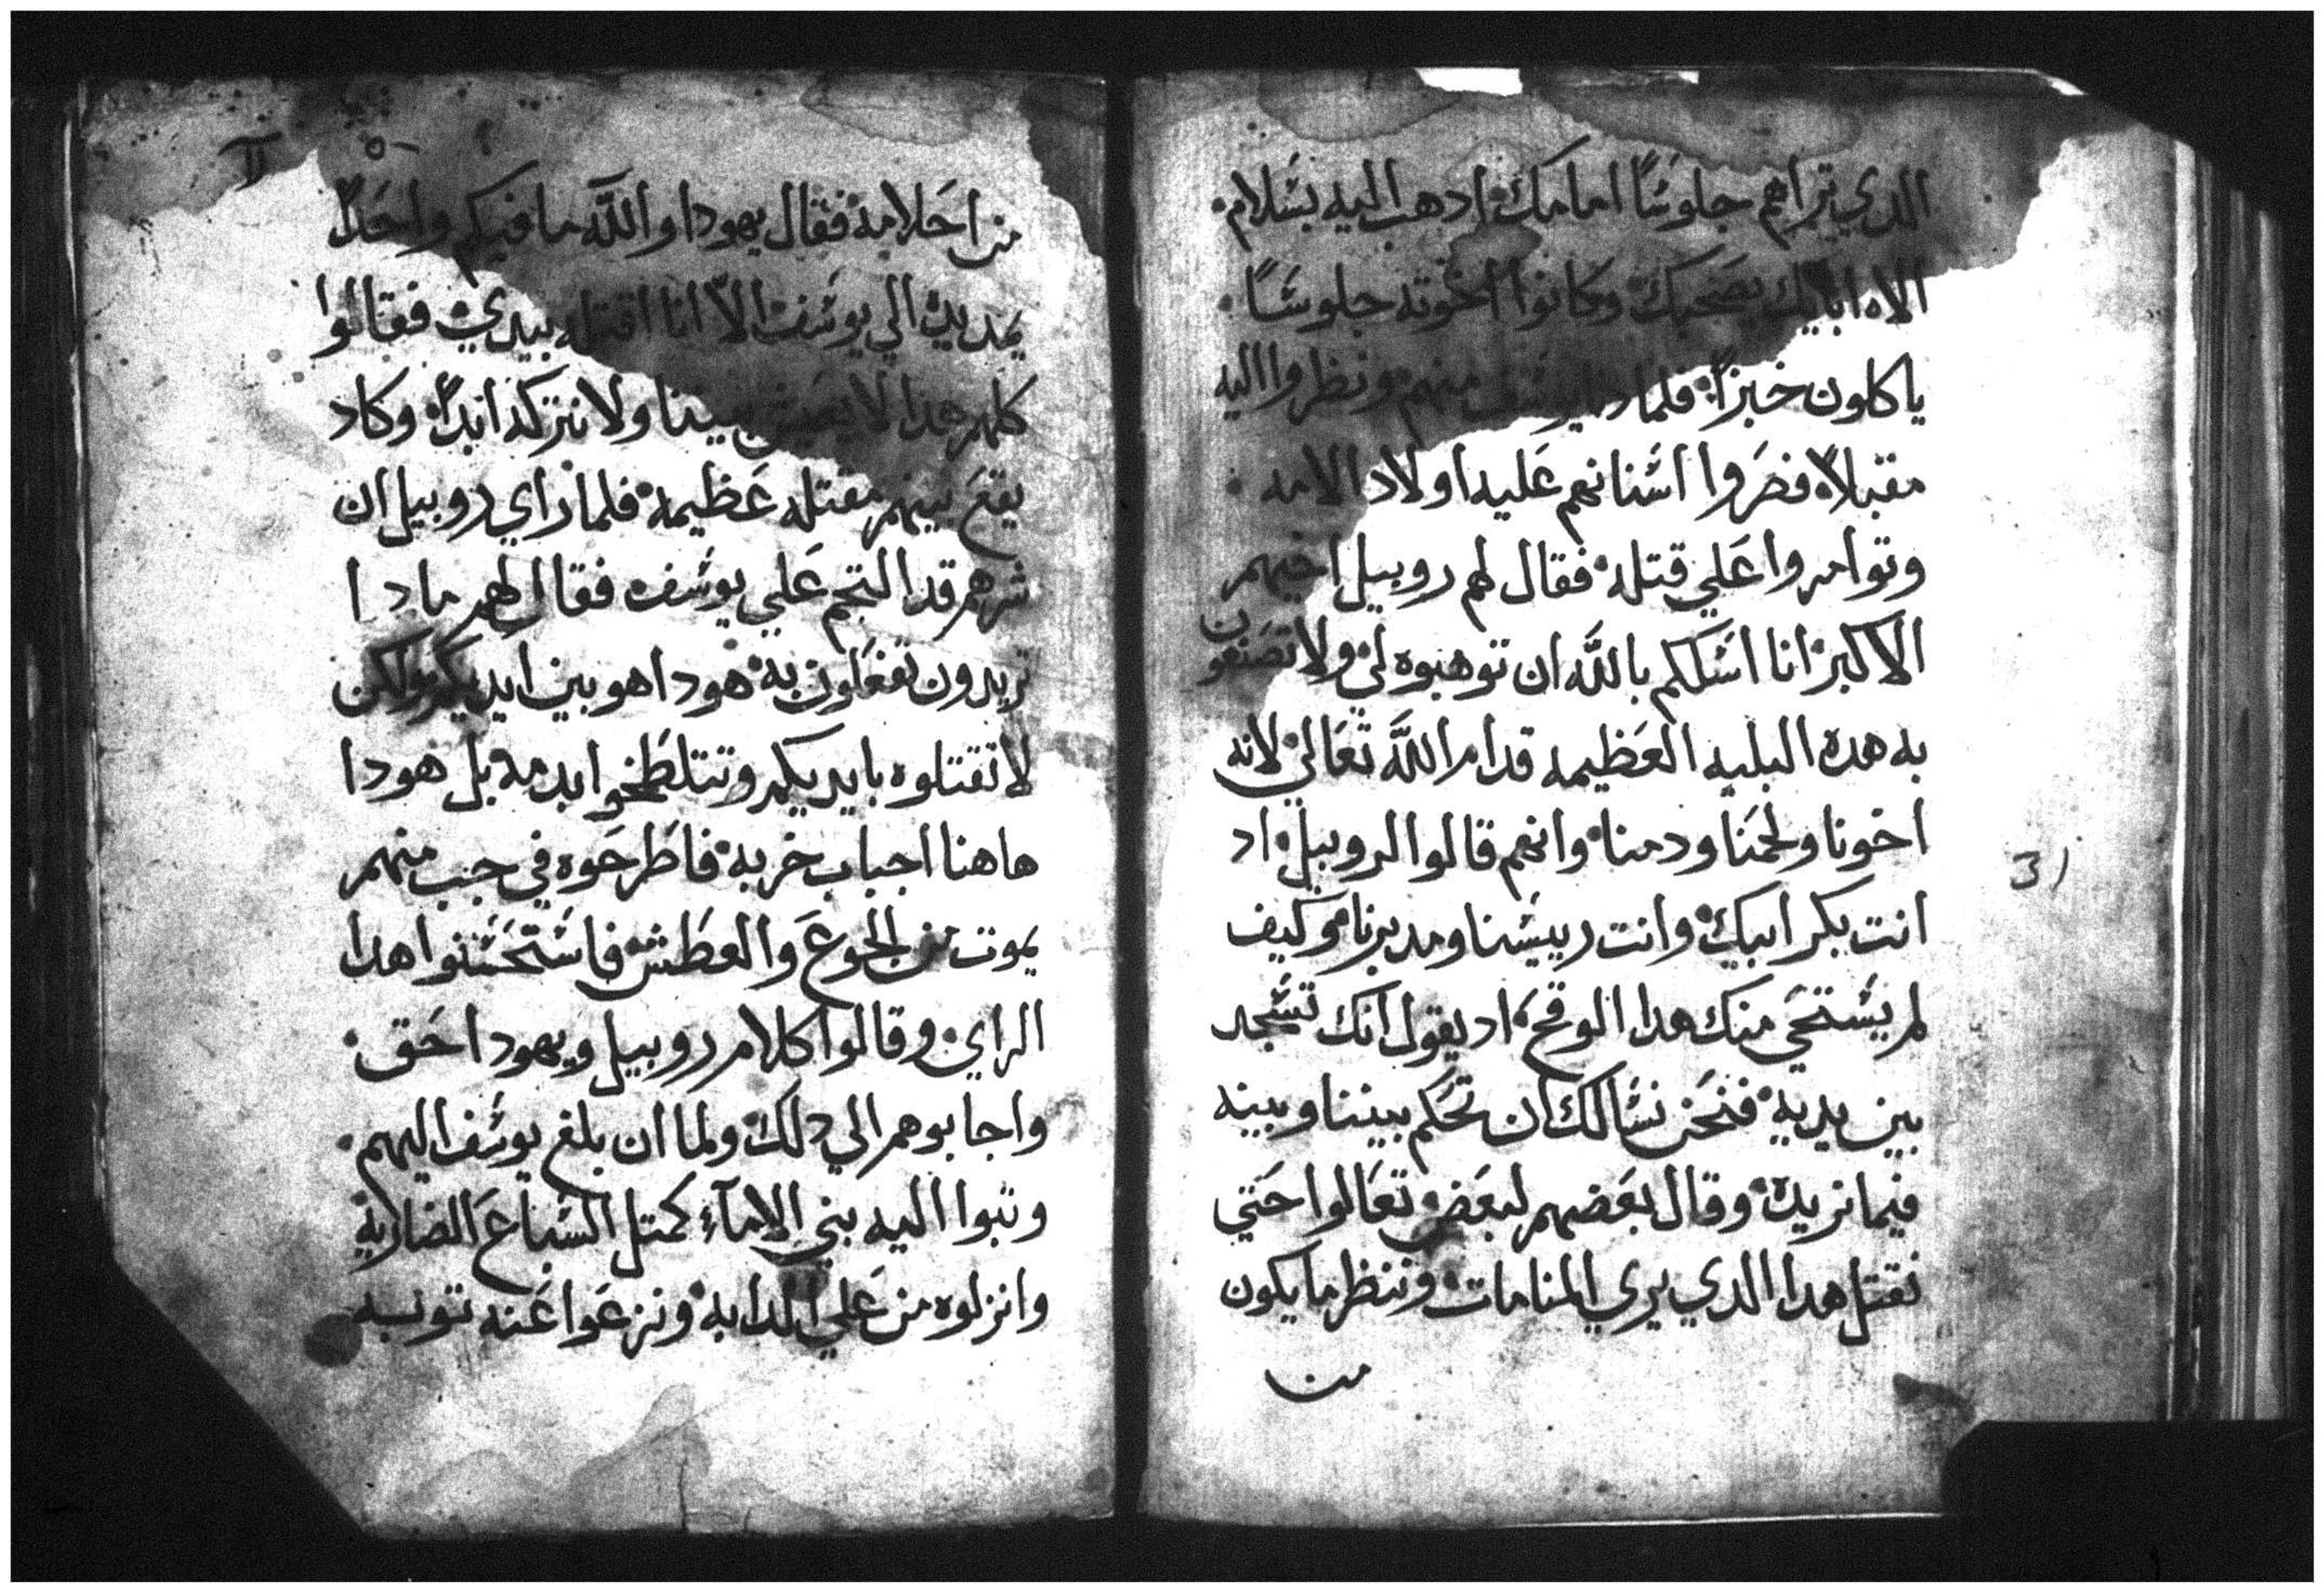 الدي تراهم جلوسًا امامك ادهب اليه بسلام
الاه ابايك يصحبك وكانوا اخوته جلوسًا
ياكلون خبزًا فلما دنا يوسف منهم ونظروا اليه
مقبلاً فصَروا اسنانهم عليه اولاد الامه
وتوامروا علي قتله فقال لهم روبيل اخيهم
الاكبر انا اسلكم بالله ان توهبوه لي ولا تصنعون
به هده البليه العظيمه قدام الله تعالي لانه
اخونا ولحمنا ودمنا وانهم قالوا لروبيل اد
انت بكر ابيك وانت رييسنا ومدبرنا وكيف
لم يستحي منك هدا الوقح اد يقول انك تسجد
بين يديه فنحن نسالك ان تحكم بيننا وبينه
فيما نريد وقال بعضهم لبعض تعالوا حتي
نقتل هدا الدي يري المنامات وننظر ما يكون
من
من احلامه فقال يهودا والله ما فيكم واحدًا
يمد يده الي يوسف الاّ انا اقتله بيدي فقالوا
كلهم هدا لا يعيش بيننا ولا نتركه ابدًا وكاد
يقع بينهم مقتله عظيمه فلما راي روبيل ان
شرهم قد التجم علي يوسف فقال لهم مادا
تريدون تفعلون به هودا هو بين ايديكم ولكن
لا تقتلوه بايديكم وتتلطخوا بدمه بل هودا
هاهنا اجباب خربه فاطرحوه في جب منهم
يموت من الجوع والعطش فاستحسنوا هدا
الراي وقالوا كلام روبيل ويهودا حق
واجابوهم الي دلك ولما ان بلغ يوسف اليهم
وتبوا اليه بني الامآء كمتل السباع الضاريه
وانزلوه من علي الدابه ونزعوا عنه توبه